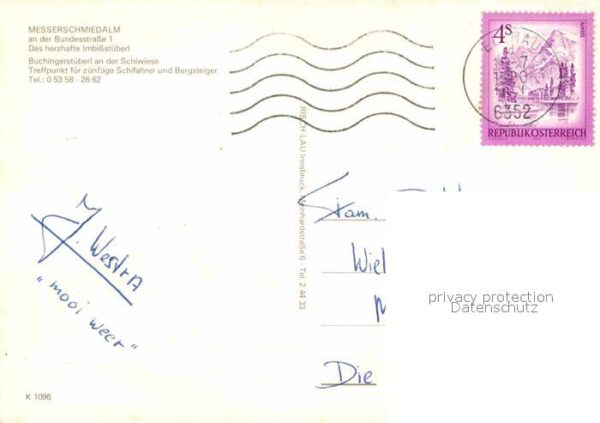 MESSERSCHMIEDALM
an der Bundesstraße 1
Das herzhafte Imbißstüberl
Buchingerstüberl an der Schiwiese
Treffpunkt für zünfüge Schifahrer und Bergsteiger
Tel.: 0 53 58 - 26 62
4s
6352
REPUBLIK ÖSTERREICH
RISCH-LAU Innsbruck, Tel. 2 44 33
Fam.
J. Westra
"mooi weer"
privacy protection
Datenschutz
Die
K 1096